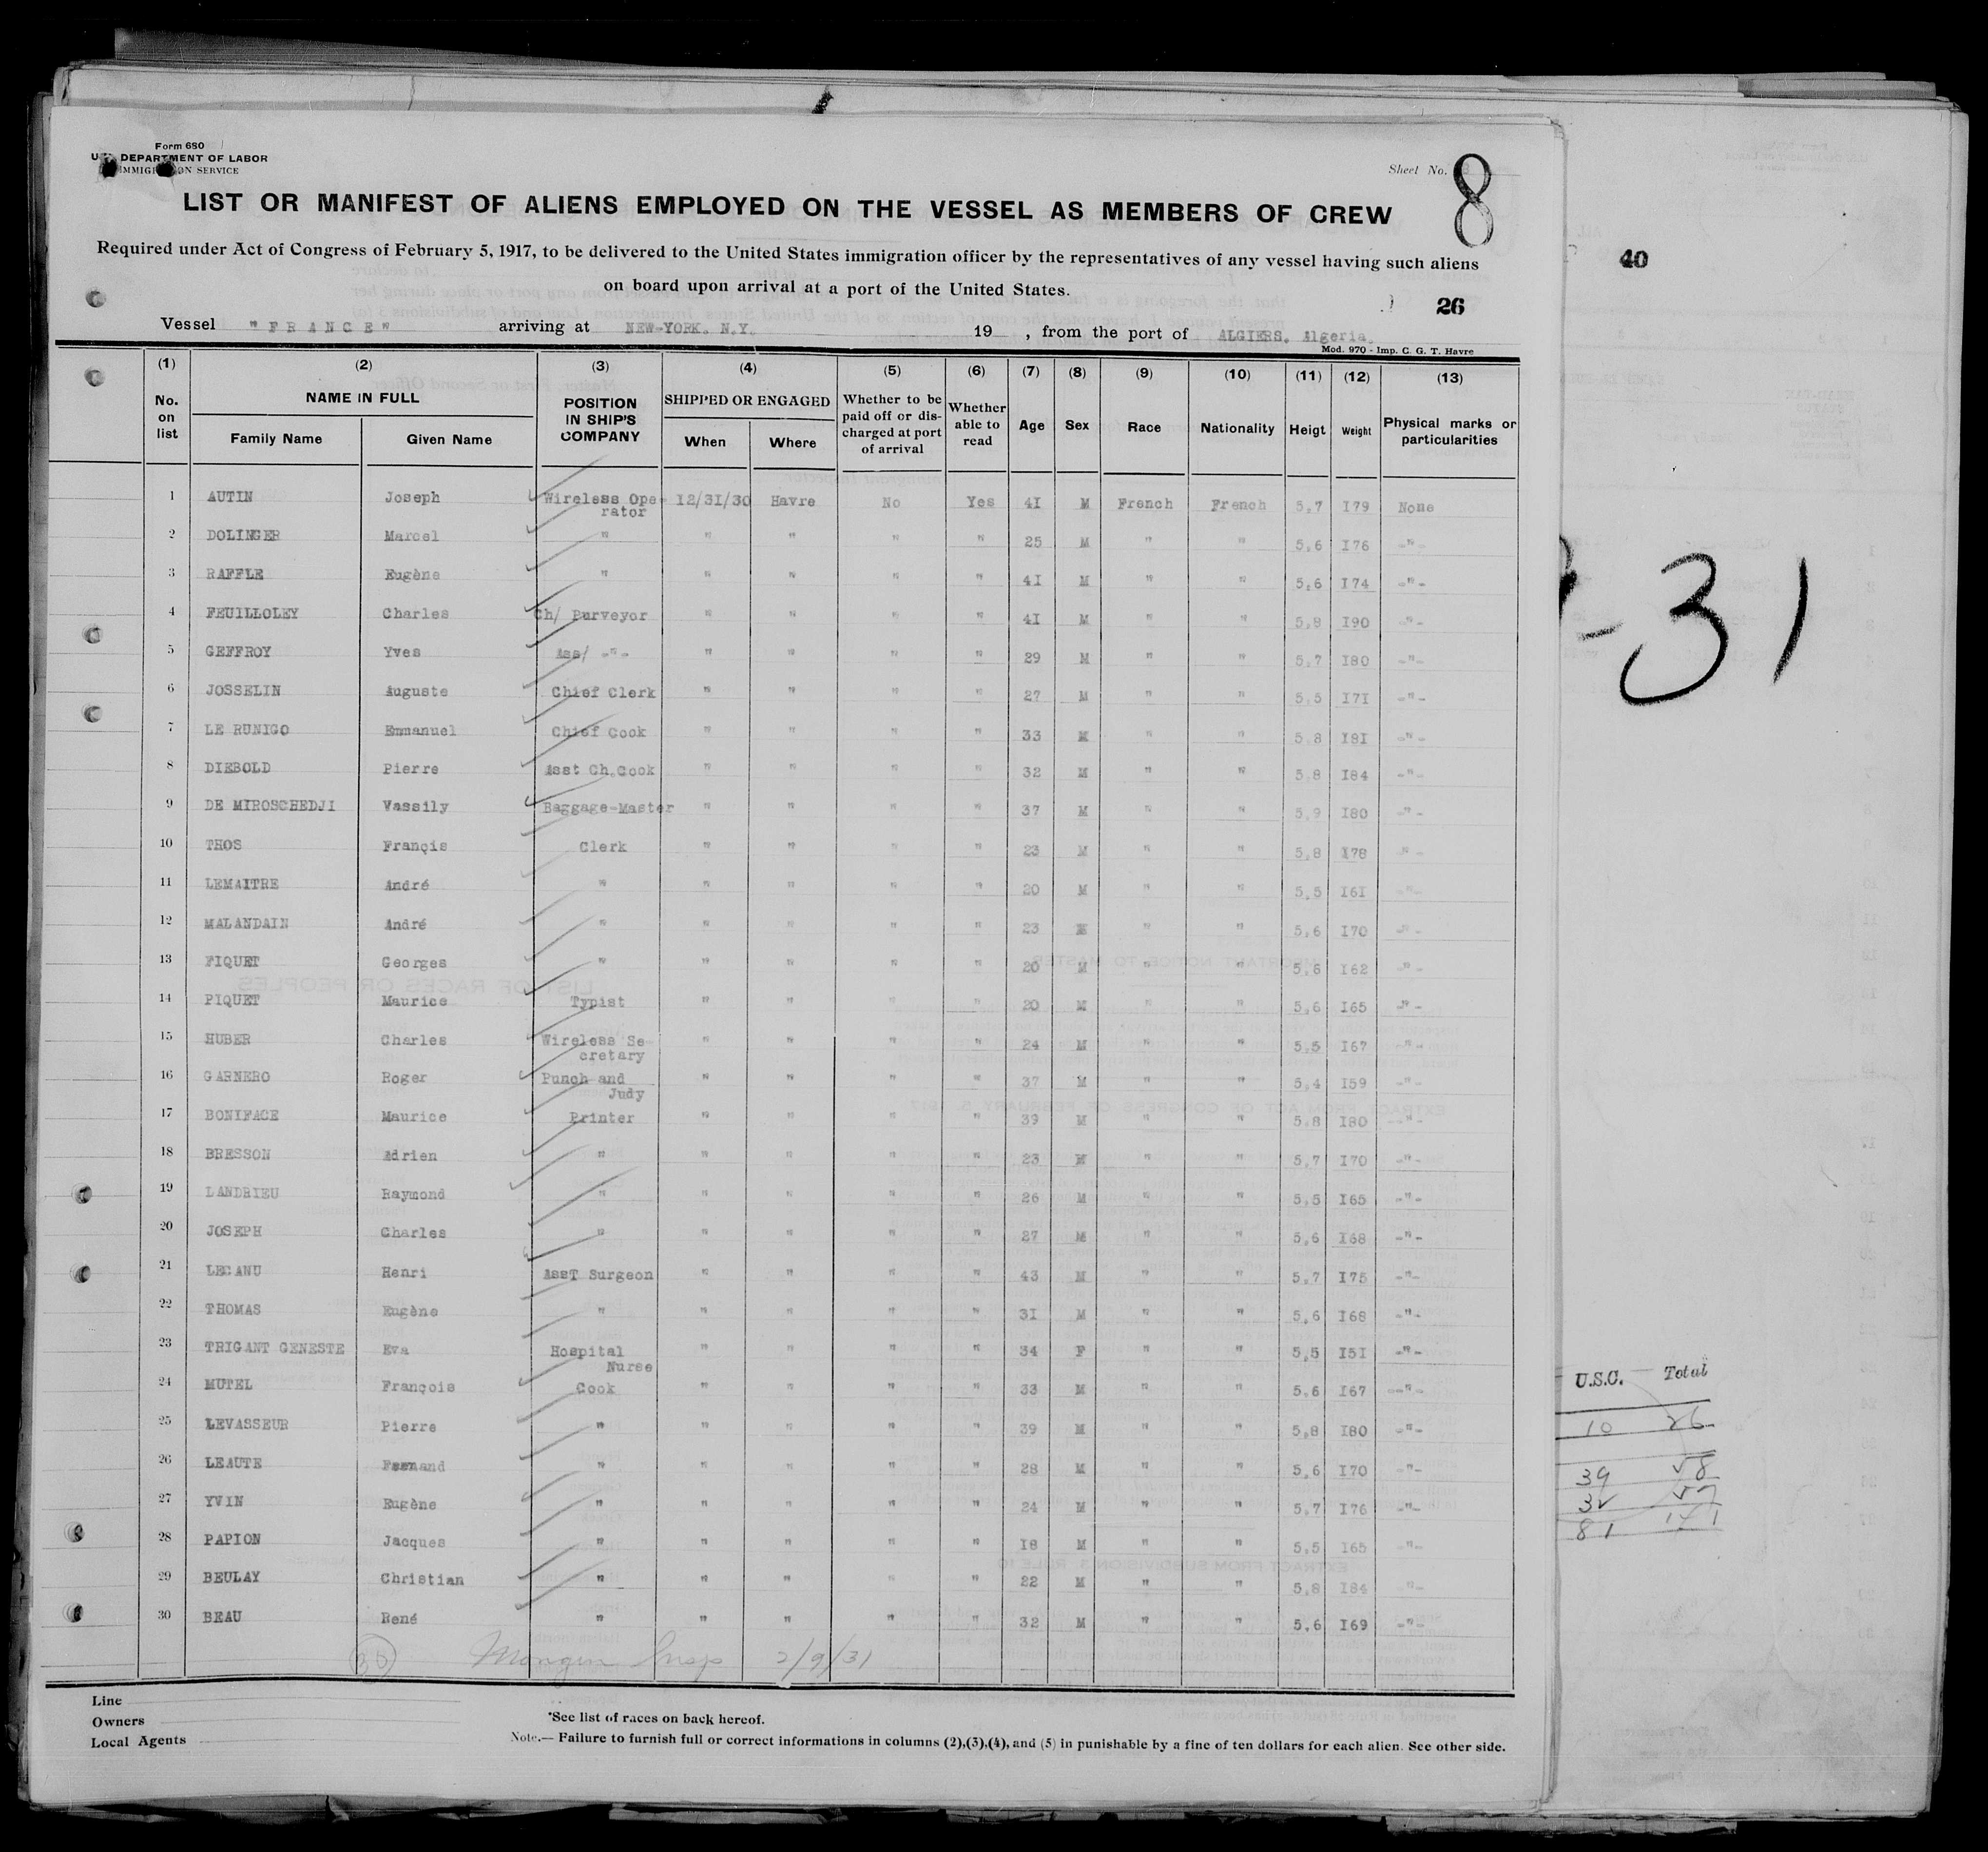 Form 680
U. S. DEPARTMENT OF LABOR
IMMIGRATION SERVICE
Sheet No. 8
LIST OR MANIFEST OF ALIENS EMPLOYED ON THE VESSEL AS MEMBERS OF CREW
Required under Act of Congress of February 5, 1917, to be delivered to the United States immigration officer by the representatives of any vessel having such aliens
on board upon arrival at a port of the United States.
40
26
Vessel "FRANCE" arriving at NEW-YORK. N.Y. 19 , from the port of ALGIERS. Algeria.
Mod. 970 - Imp. C. G. T. Havre
(1) (2) (3) (4) (5) (6) (7) (8) (9) (10) (11) (12) (13)
No. on list NAME IN FULL Family Name Given Name POSITION IN SHIP'S COMPANY SHIPPED OR ENGAGED When Where Whether to be paid off or discharged at port of arrival Whether able to read Age Sex Race Nationality Heigt Weight Physical marks or particularities
1 AUTIN Joseph Wireless Ope- rator 12/31/30 Havre No Yes 4I M French French 5,7 I79 None
2 DOLINGER Marcel " " " " " 25 M " " 5,6 I76 -"-
3 RAFFLE Eugène " " " " " 4I M " " 5,6 I74 -"-
4 FEUILLOLEY Charles Ch/ Purveyor " " " " 4I M " " 5,8 I90 -"-
5 GEFFROY Yves Ass/ -"- " " " " 29 M " " 5,7 I80 -"-
6 JOSSELIN Auguste Chief Clerk " " " " 27 M " " 5,5 I7I -"-
7 LE RUNIGO Emmanuel Chief Cook " " " " 33 M " " 5,8 I8I -"-
8 DIEBOLD Pierre Asst Ch.Cook " " " " 32 M " " 5,8 I84 -"-
9 DE MIROSCHEDJI Vassily Baggage-Master " " " " 37 M " " 5,9 I80 -"-
10 THOS Françis Clerk " " " " 23 M " " 5,8 I78 -"-
11 LEMAITRE André " " " " " 20 M " " 5,5 I6I -"-
12 MALANDAIN André " " " " " 23 M " " 5,6 I70 -"-
13 FIQUET Georges " " " " " 20 M " " 5,6 I62 -"-
14 PIQUET Maurice Typist " " " " 20 M " " 5,6 I65 -"-
15 HUBER Charles Wireless Se- cretary " " " " 24 M " " 5,5 I67 -"-
16 GARNERO Roger Punch and Judy " " " " 37 M " " 5,4 I59 -"-
17 BONIFACE Maurice Printer " " " " 39 M " " 5,8 I80 -"-
18 BRESSON Adrien " " " " " 23 M " " 5,7 I70 -"-
19 LANDRIEU Raymond " " " " " 26 M " " 5,5 I65 -"-
20 JOSEPH Charles " " " " " 27 M " " 5,6 I68 -"-
21 LECANU Henri AssT Surgeon " " " " 43 M " " 5,7 I75 -"-
22 THOMAS Eugène " " " " " 3I M " " 5,6 I68 -"-
23 TRIGANT GENESTE Eva Hospital Nurse " " " " 34 F " " 5,5 I5I -"-
24 MUTEL François Cook " " " " 33 M " " 5,6 I67 -"-
25 LEVASSEUR Pierre " " " " " 39 M " " 5,8 I80 -"-
26 LEAUTE " " " " " 28 M " " 5,6 I70 -"-
27 YVIN Eugène " " " " " 24 M " " 5,7 I76 -"-
28 PAPION Jacques " " " " " I8 M " " 5,5 I65 -"-
29 BEULAY Christian " " " " " 22 M " " 5,8 I84 -"-
30 BEAU René " " " " " 32 M " " 5,6 I69 -"-
30 2/9/31
Line
Owners
Local Agents
*See list of races on back hereof.
Note.— Failure to furnish full or correct informations in columns (2),(3),(4), and (5) in punishable by a fine of ten dollars for each alien. See other side.
-31
U.S.C. Total
10 26
39 58
32 57
81 141